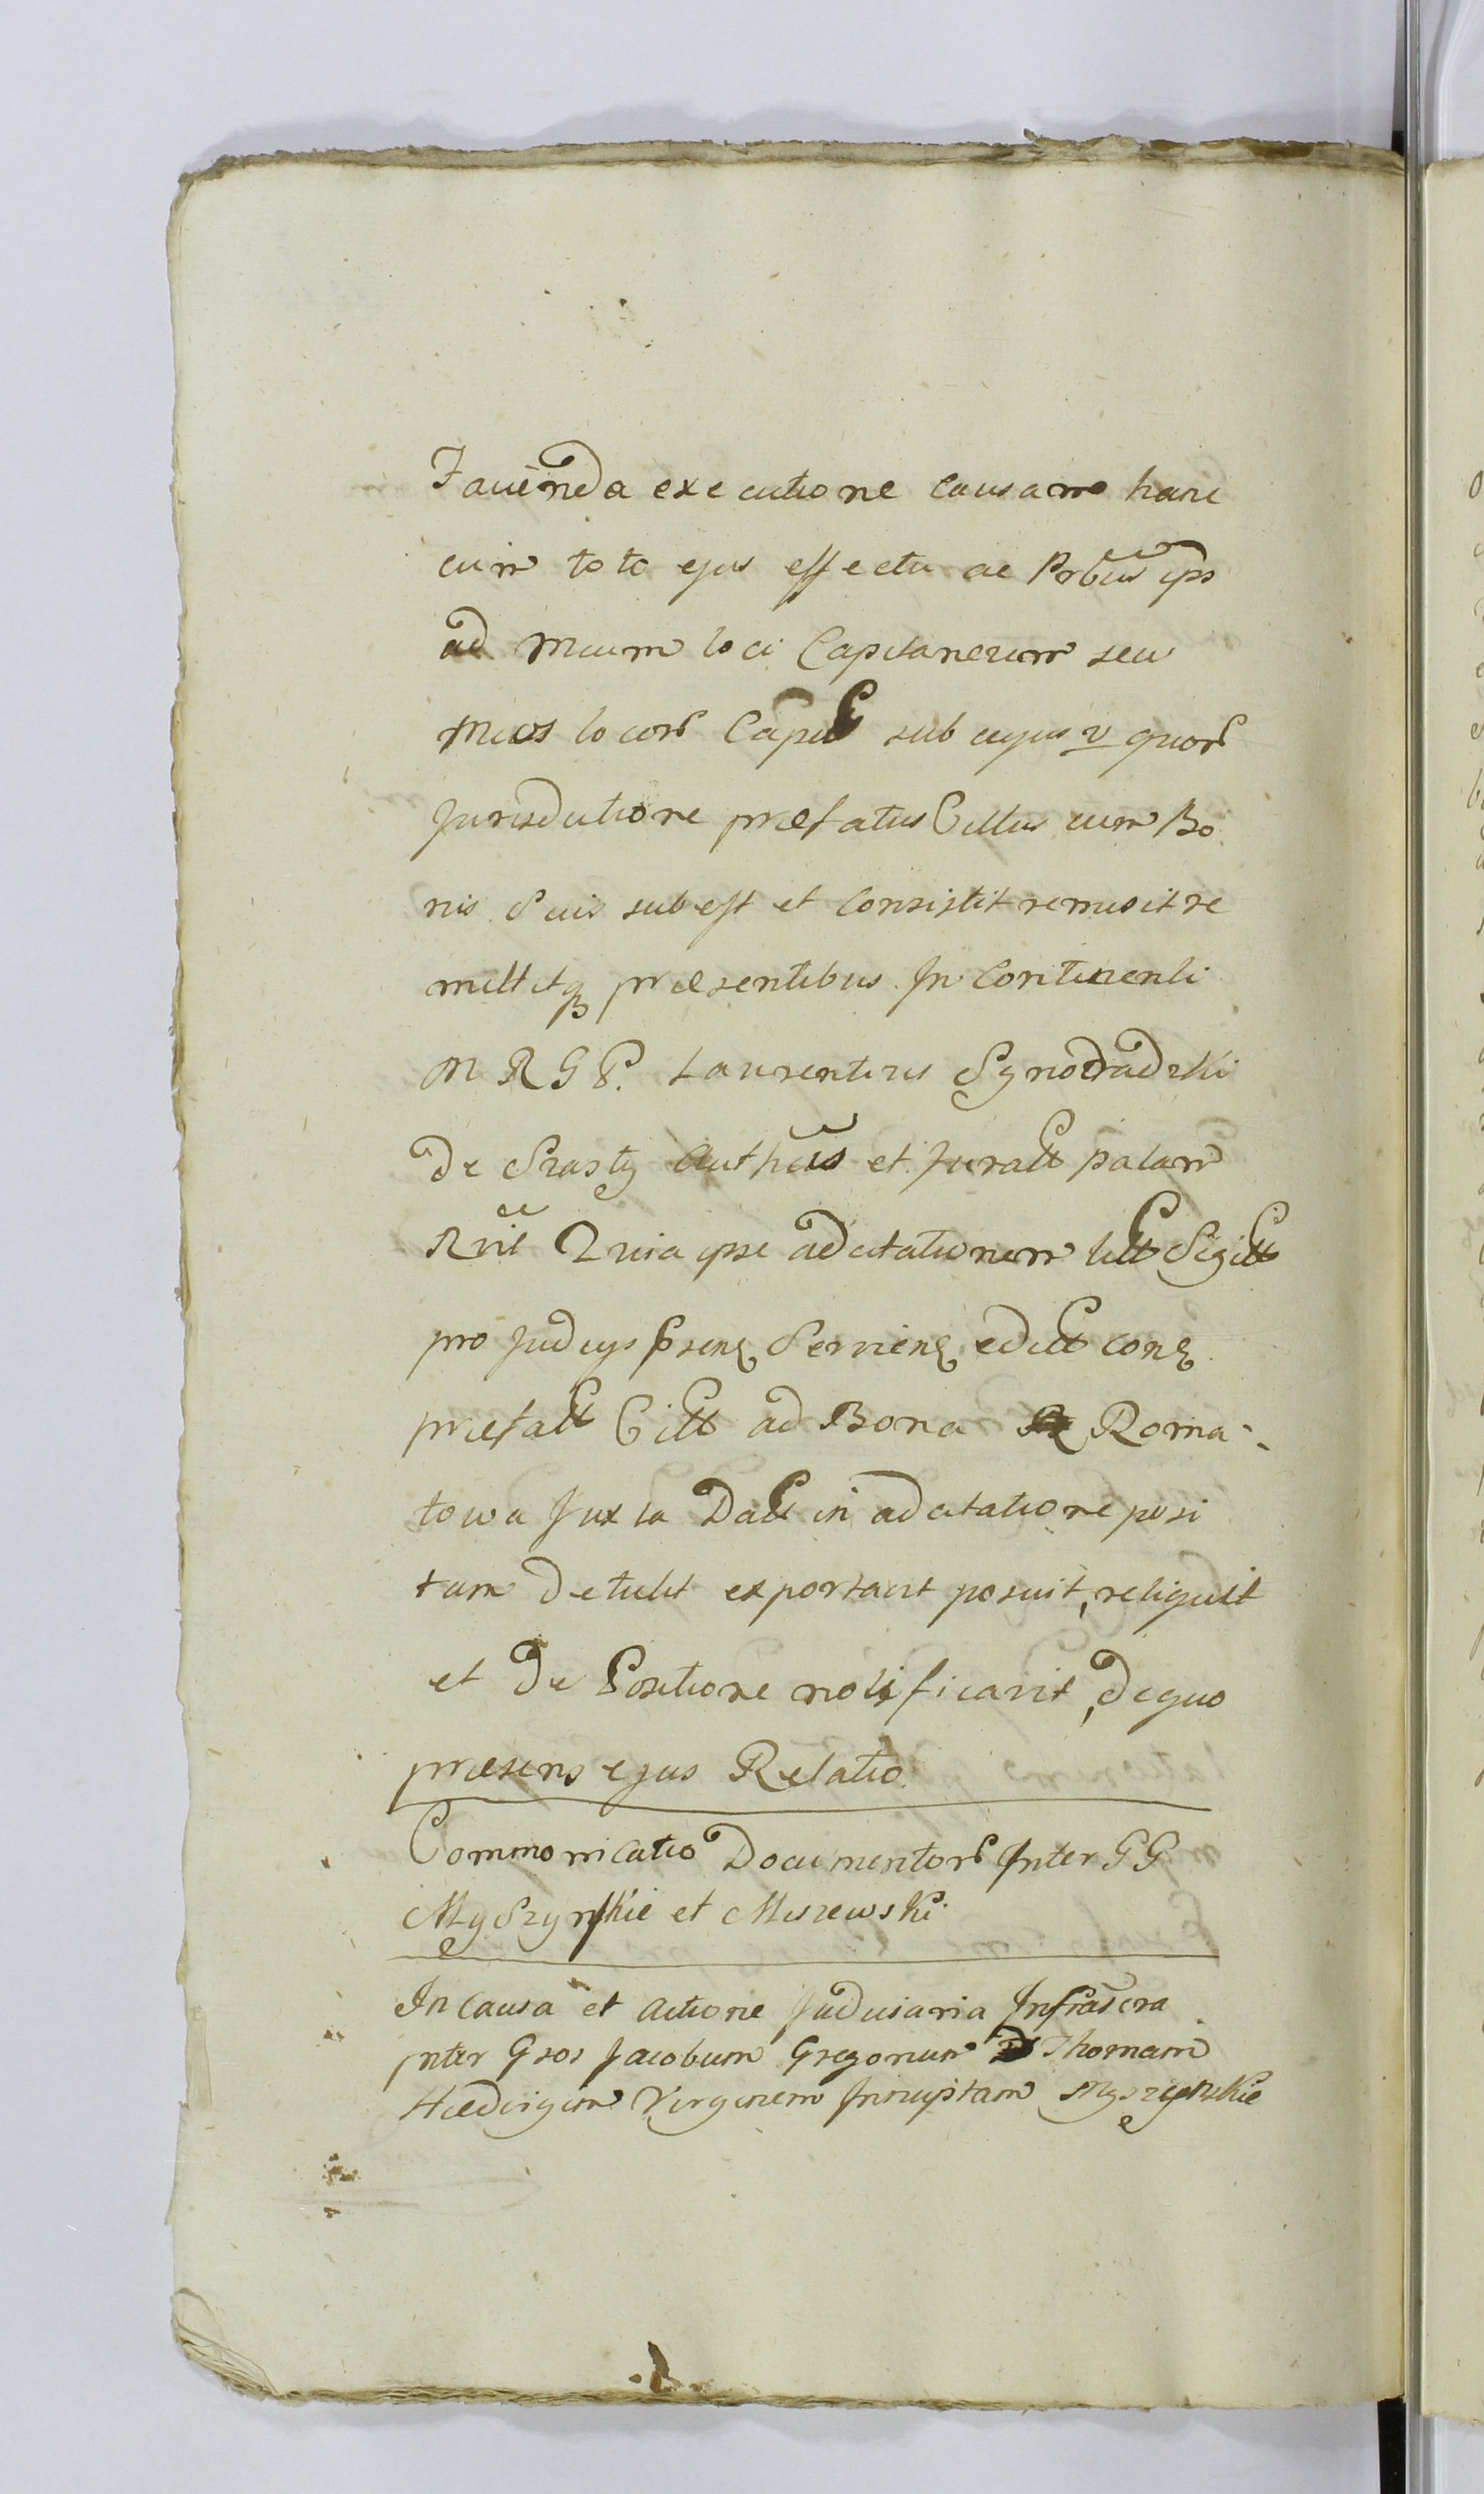 Faciēnda executione causam hanc
cum toto ejus effectu ac Prtbus ips
ad Mcum loci Capitaneum seu
Mcos locor Capit sub cujus v quor
Jurisdictione præfatus Cittus cum Bo
nis Suis subest et consistit remisit re
mittitq præsentibus. In Continenti
M R G P. Laurentius
de Authcus et Juratt palam
Rvit Quia ipse adcitationem litt Sigitt
pro Judicys prsen Servien edict con
præfatt Citt ad Bona Roma
towa Juxta Datt in adcitatione posi
tam detulit exportavit posuit, reliquit
et de Positione notificavit, de quo
præsens ejus Relatio.
Commonicatio Documentor Inter GG
MęySzynskie et Miszewski
In Causa et Actione Judiciaria Infrascra
inter Gsos Jacobum Gregorium Thomam
Hedvigim Virginem Innuptam Męyszynskie